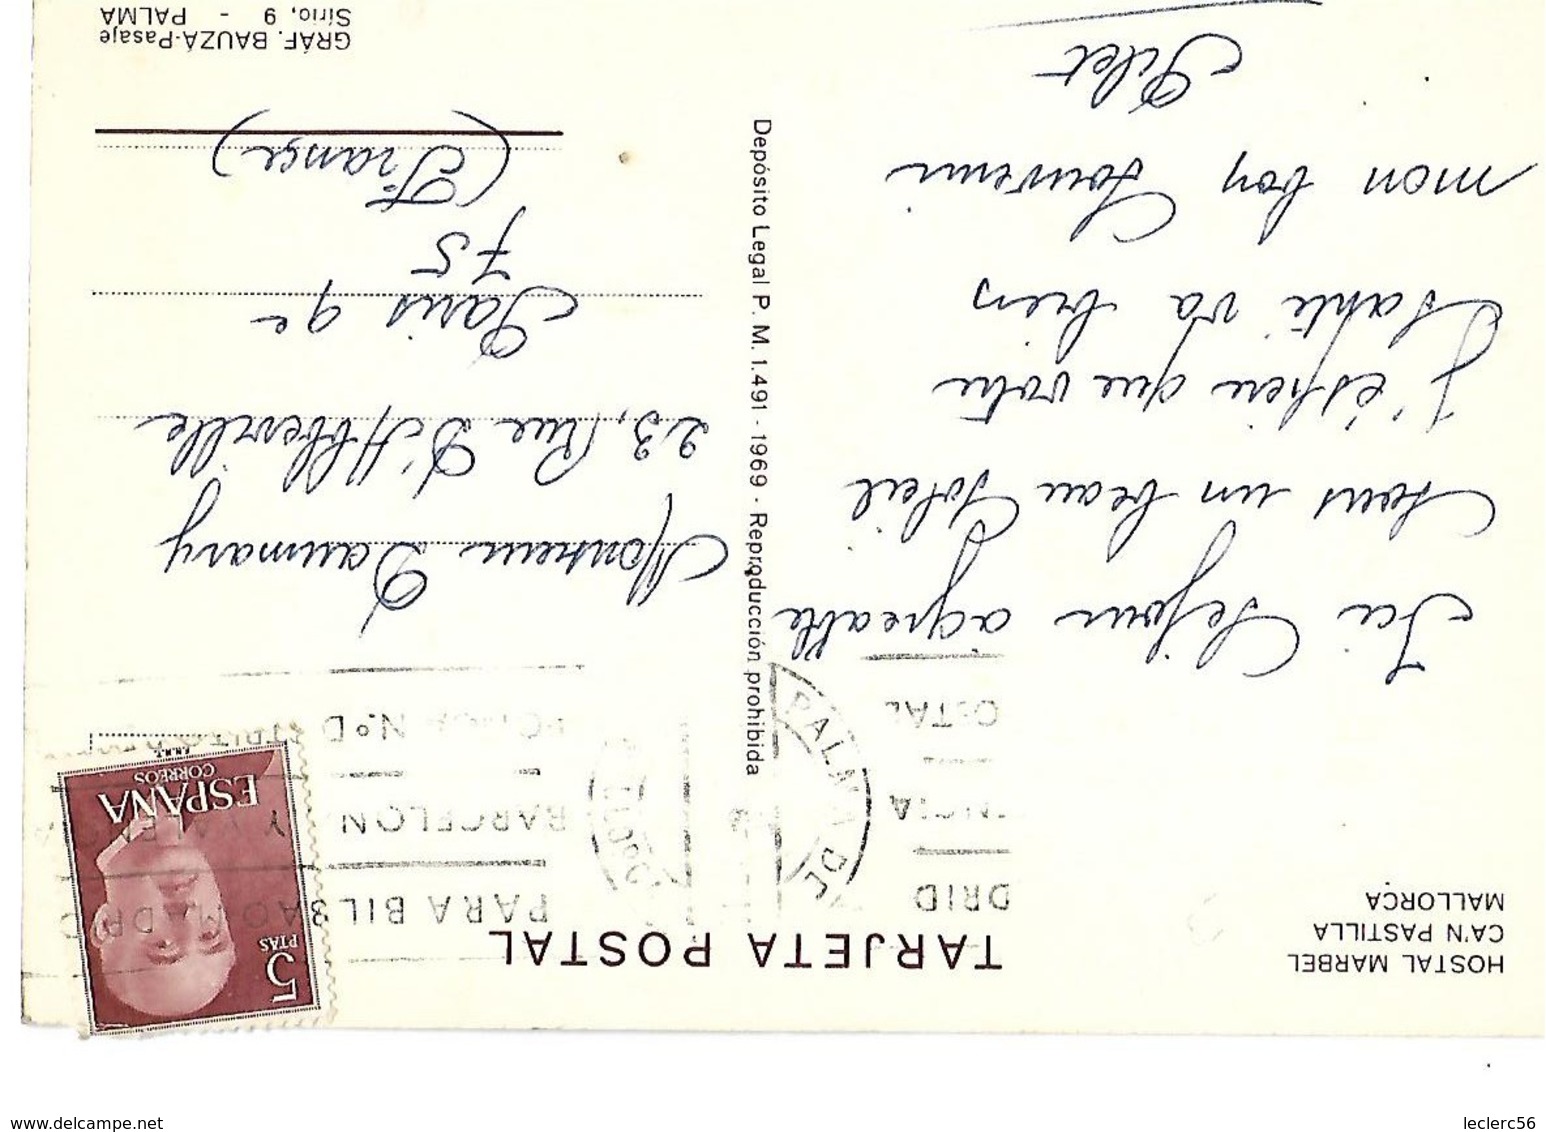 HOSTAL MARBEL
CA'N PASTILLA
MALLORCA
TARJETA POSTAL
5
PTAS
ESPAÑA
CORREOS
F.N.M.T.
PARA BILBAO MADRID
BARCELON
Y VALEN
DRID
PALMA DE
Ici Séjour agréable
Sous un beau Soleil
J'éspère que votre
Santé va bien
mon bon Souvenir
Pilet
Monsieur Daumary
23, Rue D'Abbeville
Paris 9e
75
(France)
Depósito Legal P. M. 1.491 - 1969 - Reproducción prohibida
GRÁF. BAUZÁ-Pasaje
Sirio, 9 - PALMA
www.delcampe.net
leclerc56